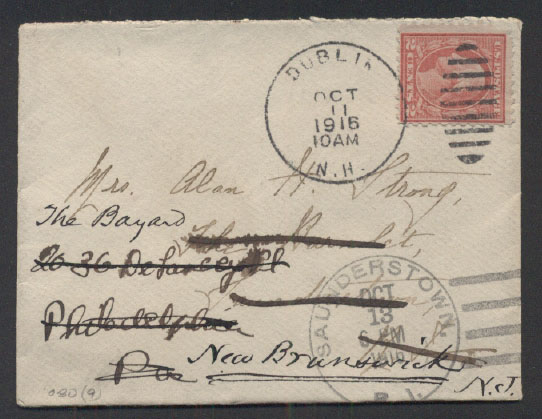 DUBLIN
OCT
11
1916
10AM
N.H.
Mrs. Alan H. Strong,
The Bayard
2036 Delancey Pl
Philadelphia
Pa
New Brunswick
N.J.
SAUNDERSTOWN
OCT
13
6 PM
1916
R.I.